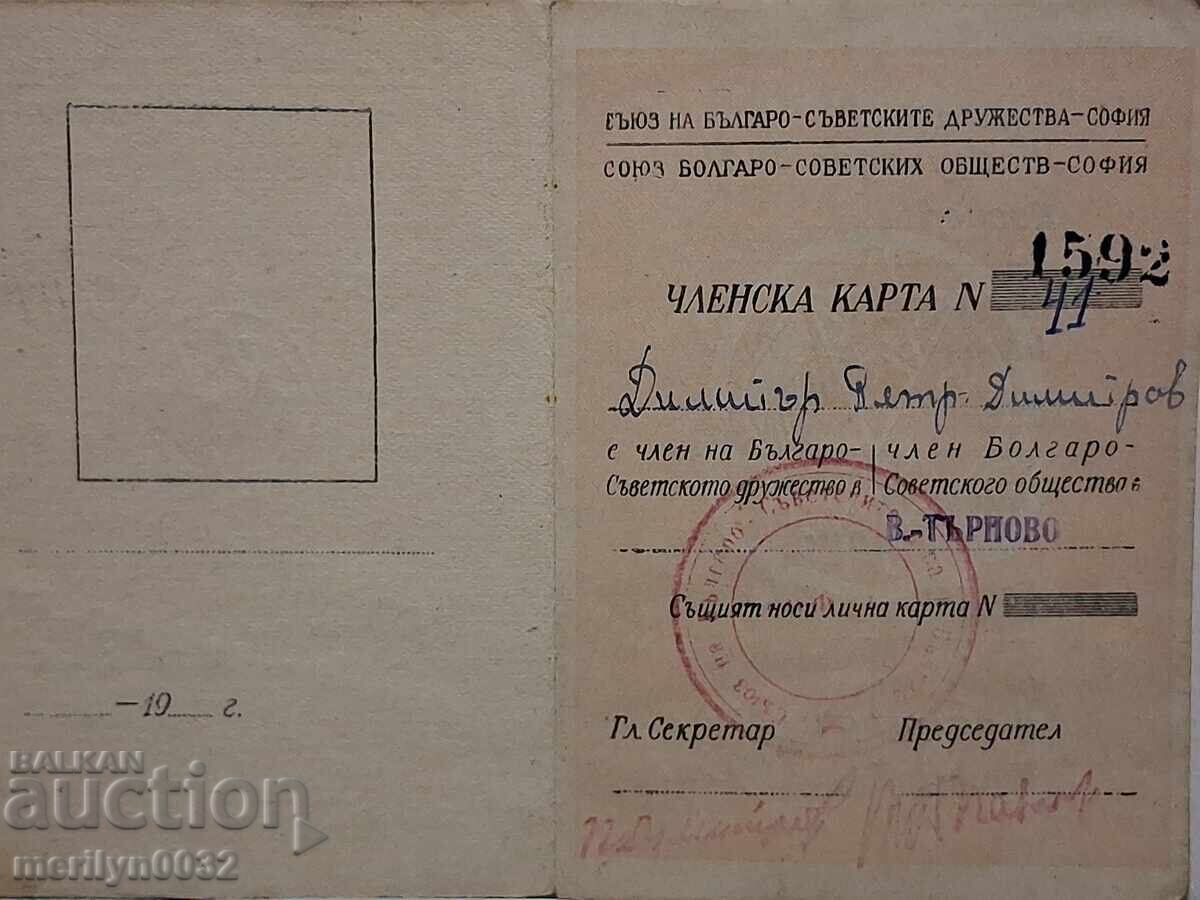 -19 г.
СЪЮЗ НА БЪЛГАРО-СЪВЕТСКИТЕ ДРУЖЕСТВА-СОФИЯ
СОЮЗ БОЛГАРО-СОВЕТСКИХ ОБЩЕСТВ-СОФИЯ
1592
ЧЛЕНСКА КАРТА N
41
Димитър Петр. Димитров
е член на Българо- член Болгаро-
Съветското дружество в Советского общества в
В.-ТЪРНОВО
Същият носи лична карта N
Гл. Секретар Председател
BALKAN
auction
merilyn0032